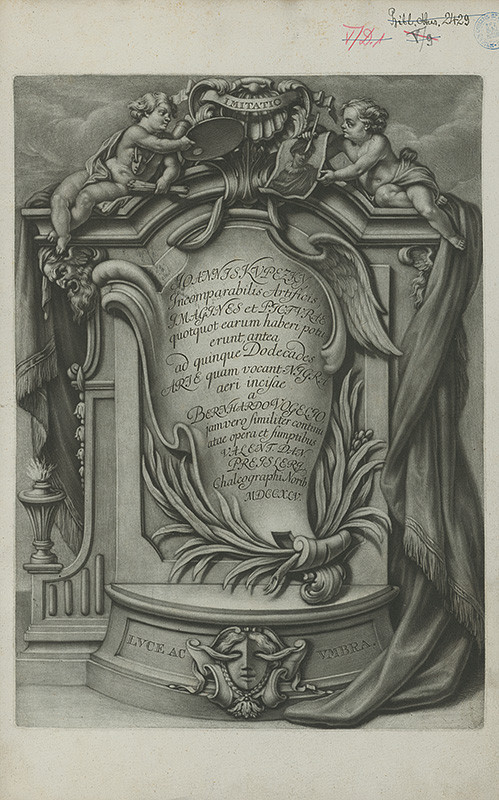 Bibl. Mus. 2429
V/D,1
V/9
IMITATIO
IOANNIS KVPEZKY
Incomparabilis Artificis
IMAGINES et PICTVRAE
quotquot earum haberi potu
erunt, antea
ad quinque Dodecades
ARTE quam vocant NIGRA
aeri incisae
a
BERNHARDO VOGELIO
jam vero similiter contin
atae opera et sumptibus
VALENT. DAN.
PREISLERI,
Chalcographi Norib.
MDCCXLV
LVCE AC VMBRA.